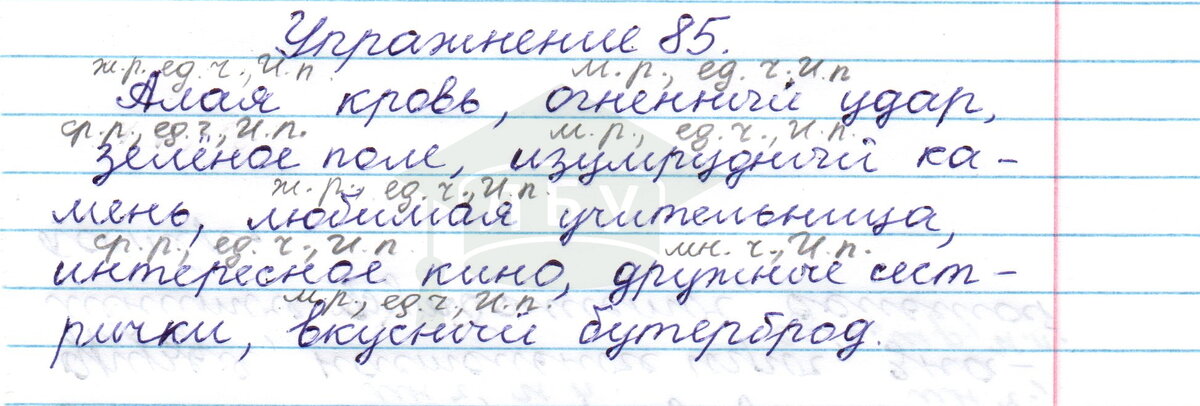 Упражнение 85.
ж.р., ед.ч., И.п. м.р., ед.ч., И.п.
Алая кровь, огненный удар,
ср.р., ед.ч., И.п. м.р., ед.ч., И.п.
зелёное поле, изумрудный ка-
ж.р., ед.ч., И.п.
мень, любимая учительница,
ср.р., ед.ч., И.п. мн.ч., И.п.
интересное кино, дружные сест-
м.р., ед.ч., И.п.
рички, вкусный бутерброд.
ПБУ